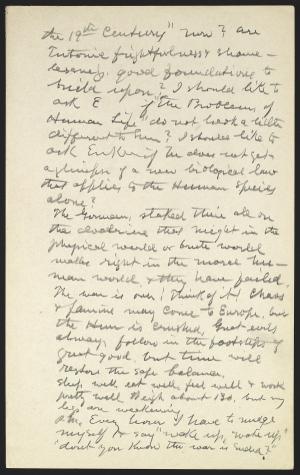 the 19th Century" now? Are
Teutonic frightfulness & shame-
lessness good foundations to
build upon? I should like to
ask E if the Problems of
Human Life do not look a little
different to him? I should like to
ask Eucken if he does not get
a glimpse of a new biological law
that applies to the Human Species
alone?
The Germans staked their all on
the doctrine that might in the
physical world or brute world
makes right in the moral hu-
man world & they have failed.
The war is over! think of it! Chaos
& famine may come to Europe, but
the Hun is crushed, Great evils
always follow in the footsteps of
great good, but time will
restore the safe balance.
Sleep well, eat well, feel well & work
pretty well Weigh about 130, but my
legs are weakening.
Every hour I have to nudge
myself & say "wake up, wake up,
don't you know the war is ended?"